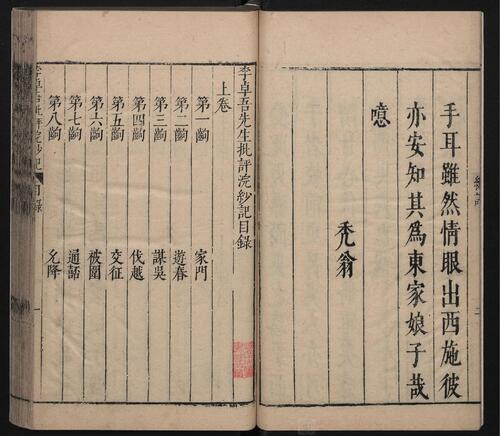 手耳雖然情眼出西施彼
亦安知其為東家娘子哉
噫
禿翁
李卓吾先生批評浣紗記目錄
上卷
第一齣 家門
第二齣 遊春
第三齣 謀吳
第四齣 伐越
第五齣 交征
第六齣 被圍
第七齣 通嚭
第八齣 允降
李卓吾批評浣紗記 目錄 一